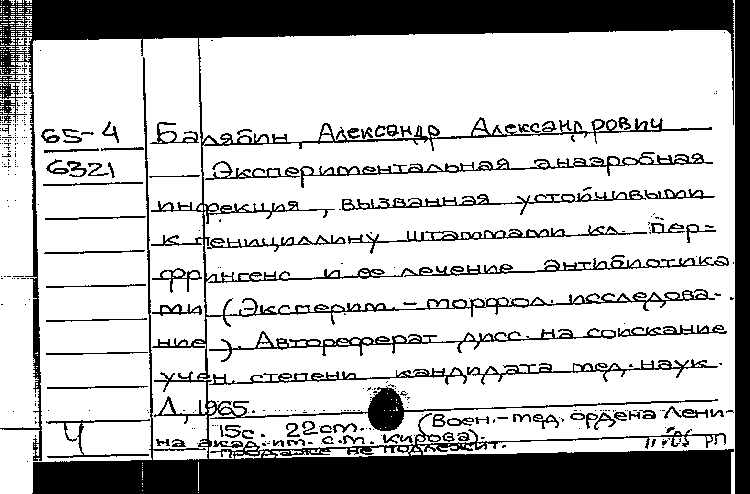 65-4 Балябин, Александр Александрович
6321 Экспериментальная анаэробная
инфекция, вызванная устойчивыми
к пенициллину штаммами кл. Пер=
фрингенс и ее лечение антибиотика
ми (Эксперим.-морфол. исследова-
ние). Автореферат дисс. на соискание
учен. степени кандидата мед. наук.
Л, 1965.
15с. 22см. (Воен.-мед. ордена Лени-
Ч на акад. им. С.М. Кирова).
продаже не подлежит. РП